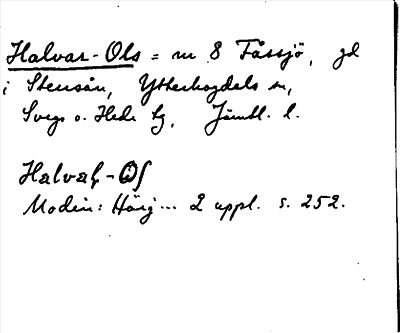 Halvar-Ols = nr 8 Fåssjö, gd
i Stensån, Ytterhogdals sn,
Svegs o. Hede tg, Jämtl. l.
Halvaḥ-Ol
Modin: Härj... 2 uppl. s. 252.